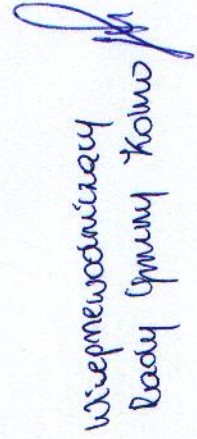 Wiceprzewodniczący
Rady Gminy Kolno